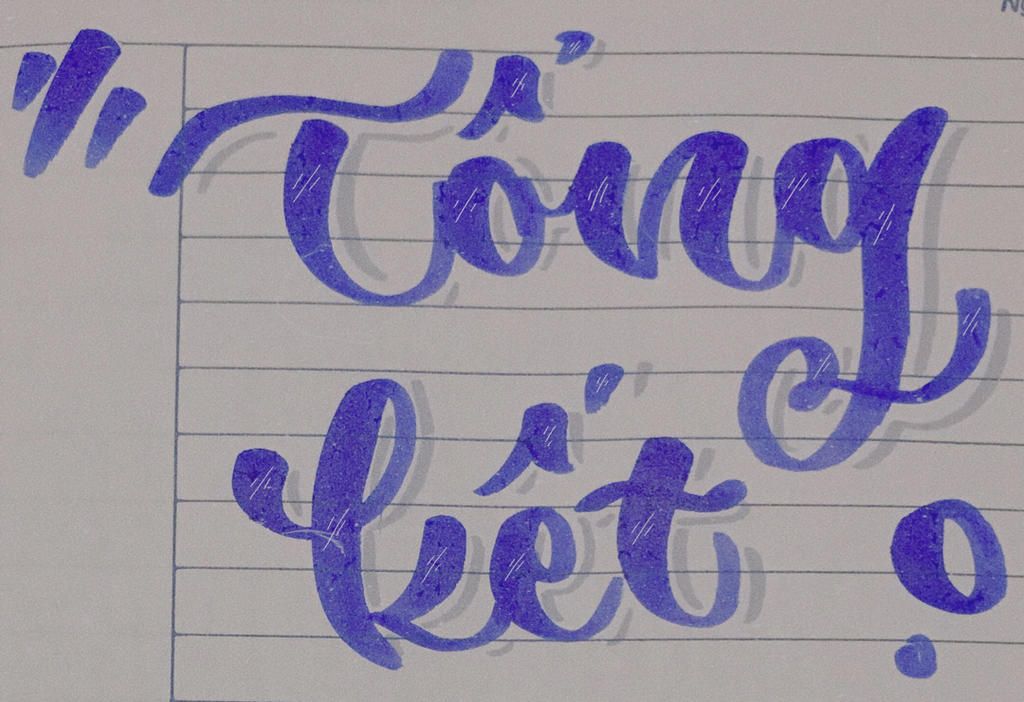 Tổng
kết